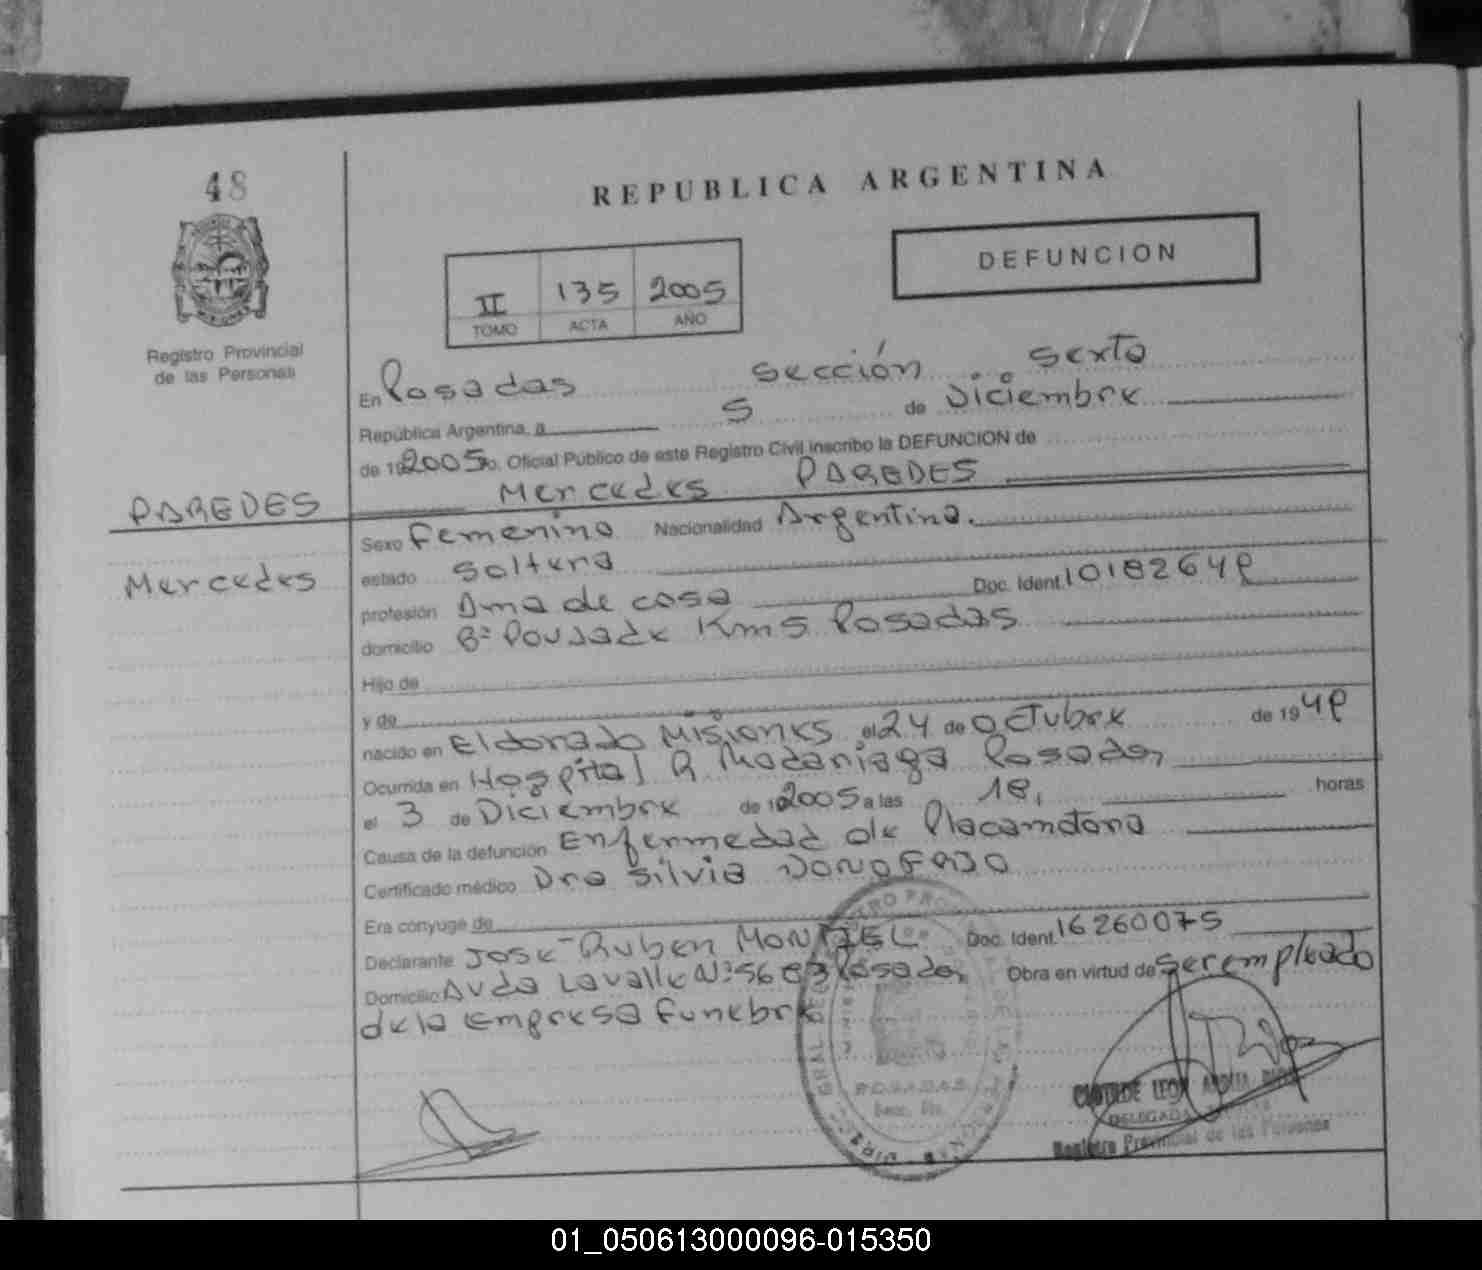 48
REPUBLICA ARGENTINA
DEFUNCION
II 135 2005
TOMO ACTA AÑO
Registro Provincial
de las Personas
En Posadas Sección sexta
República Argentina, a 5 de Diciembre
de 19 2005 Oficial Público de este Registro Civil inscribo la DEFUNCION de
PAREDES
Mercedes PAREDES
Sexo Femenino Nacionalidad Argentina.
Mercedes
estado Soltera
profesión Ama de casa Doc. Ident.
domicilio Bº Pousade Km5 Posadas
Hijo de
y de
nacido en Eldorado Misiones el 24 de Octubre de 19
Ocurrida en Hospital R Madariaga Posadas
el 3 de Diciembre de 2005 a las horas
Causa de la defunción Enfermedad de
Certificado médico Dra Silvia
Era cónyuge de
Declarante José Ruben MONTIEL Doc. Ident. 16260075
Domicilio Avda Lavalle Nº Posadas Obra en virtud de ser empleado
de la Empresa Funebre
POSADAS
DELEGADA
Registro Provincial de las Personas
01_050613000096-015350